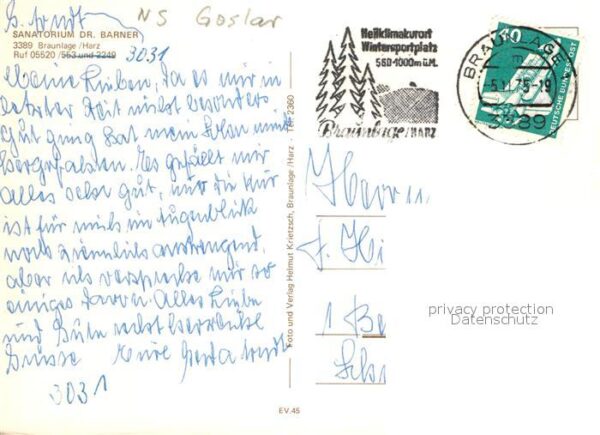 G. Arndt
NS Goslar
SANATORIUM DR. BARNER
3389 Braunlage/Harz
Ruf 05520 / 553 und 3249
3031
Meine Lieben, da es mir in
letzter Zeit nicht besonders
gut ging hat mein Sohn mich
hergefahren. Es gefällt mir
alles sehr gut, nur die Kur
ist für mich im Augenblick
noch ziemlich anstrengend,
aber ich verspreche mir so
einiges davon. Alles Liebe
und Gute nebst herzliche
Grüsse Eure Arndt
3031
Foto und Verlag Helmut Krietzsch, Braunlage/Harz · Tel. 2360
EV.45
Heilklimakurort
Wintersportplatz
560-1000m ü.M.
Braunlage/HARZ
BRAUNLAGE
5.11.75-19
3389
40
DEUTSCHE BUNDESPOST
Herrn
1 Be
privacy protection
Datenschutz